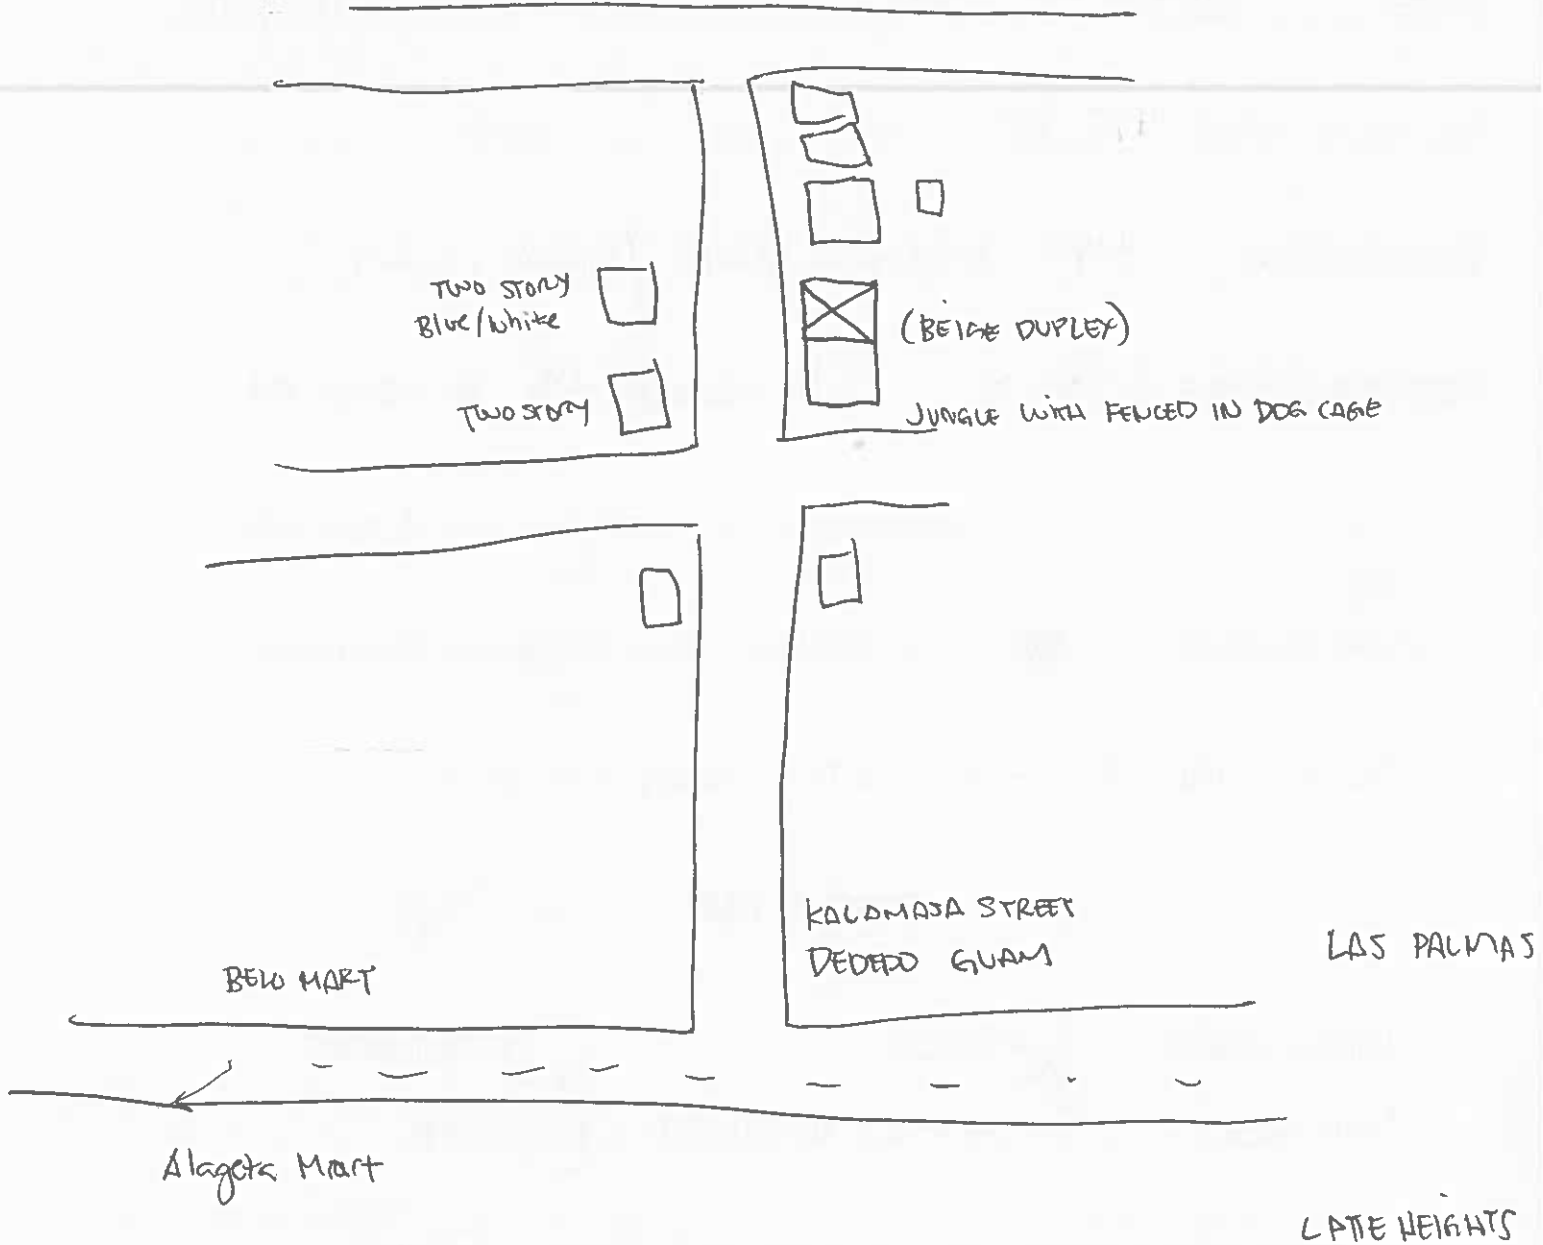 TWO STORY
Blue/White
(BEIGE DUPLEX)
TWO STORY
JUNGLE WITH FENCED IN DOG CAGE
KALAMASA STREET
DEDEDO GUAM
LAS PALMAS
BELO MART
Alageta Mart
LATTE HEIGHTS